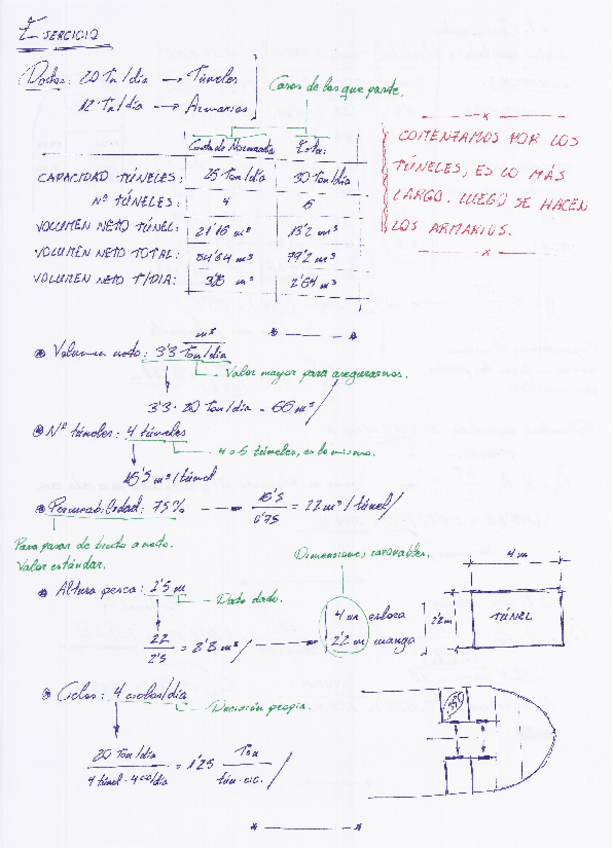 EJERCICIO
Datos: 20 Tn/día → Túneles
12 Tn/día → Armarios
Casos de los que parte.
COMENZAMOS POR LOS
TÚNELES, ES LO MÁS
LARGO. LUEGO SE HACEN
LOS ARMARIOS.
Costa de Normandía
CAPACIDAD TÚNELES: 25 Ton/día 30 Ton/día
Nº TÚNELES: 4 6
VOLUMEN NETO TÚNEL: 21'16 m³ 13'2 m³
VOLUMEN NETO TOTAL: 84'64 m³ 79'2 m³
VOLUMEN NETO T/DIA: 2'64 m³
Volumen neto: 3'3 m³/Ton/día
Valor mayor para asegurarnos.
3'3 · 20 Ton/día = 66 m³
Nº túneles: 4 túneles
4 o 6 túneles, es lo mismo.
16'5 m³/túnel
Permeabilidad: 75% → 16'5/0'75 = 22 m³/túnel
Para pasar de bruto a neto.
Valor estándar.
Dimensiones razonables.
4 m
Altura pesca: 2'5 m
Dato dado.
22/2'5 = 8'8 m²
4 m eslora
2'2 m manga
2'2m
TÚNEL
Ciclos: 4 ciclos/día
Decisión propia.
20 Ton/día / 4 túnel · 4 cic/día = 1'25 Ton / tún · cic.